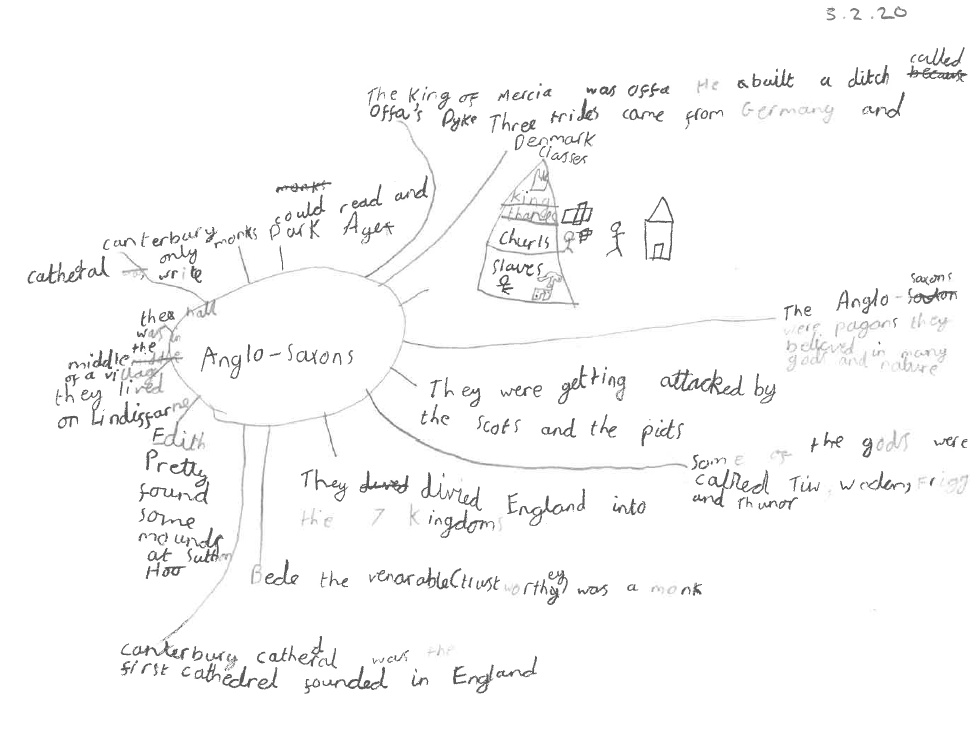 3.2.20
The King of Mercia was Offa He abuilt a ditch because called
Offa's Dyke Three trides came from Germany and
Denmark
Classes
king
thanes
churls
Slaves
monks
could read and
monks Dark Ages
only
write
canterbury
cathetal
the hall
was in
the
middle middle
of a village
they lived
on Lindisfarne
Anglo-Saxons
The Anglo-Souton saxons
were pagans they
believed in many
gods and nature
They were getting attacked by
the scots and the picts
Some of the gods were
called Tiw, woden, Frigg
and Thunor
They dived divied England into
the 7 kingdoms
Edith
Pretty
found
some
mounds
at Sutton
Hoo
Bede the venarable (trustworthey) was a monk
canterbury cathedral was the
first cathedrel founded in England